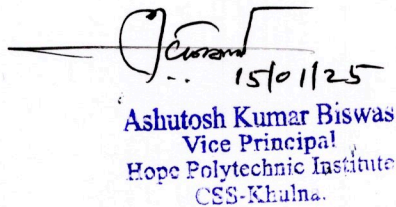 15/01/25
Ashutosh Kumar Biswas
Vice Principal
Hope Polytechnic Institute
CSS-Khulna.